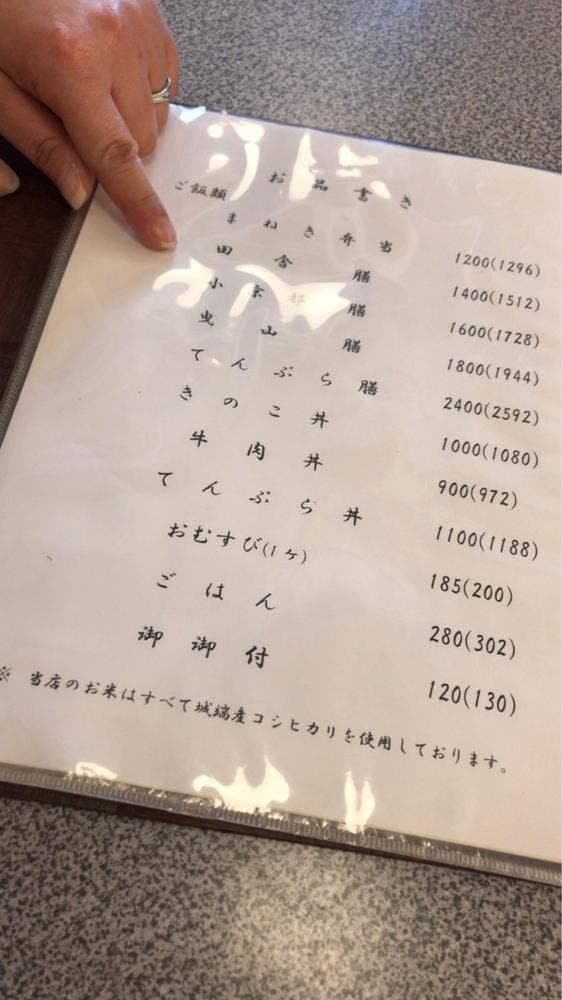 お品書き
ご飯類
まねき弁当 1200(1296)
田舎膳 1400(1512)
小京都膳 1600(1728)
曳山膳 1800(1944)
てんぷら膳 2400(2592)
きのこ丼 1000(1080)
牛肉丼 900(972)
てんぷら丼 1100(1188)
おむすび(1ヶ) 185(200)
ごはん 280(302)
御御付 120(130)
※ 当店のお米はすべて城端産コシヒカリを使用しております。